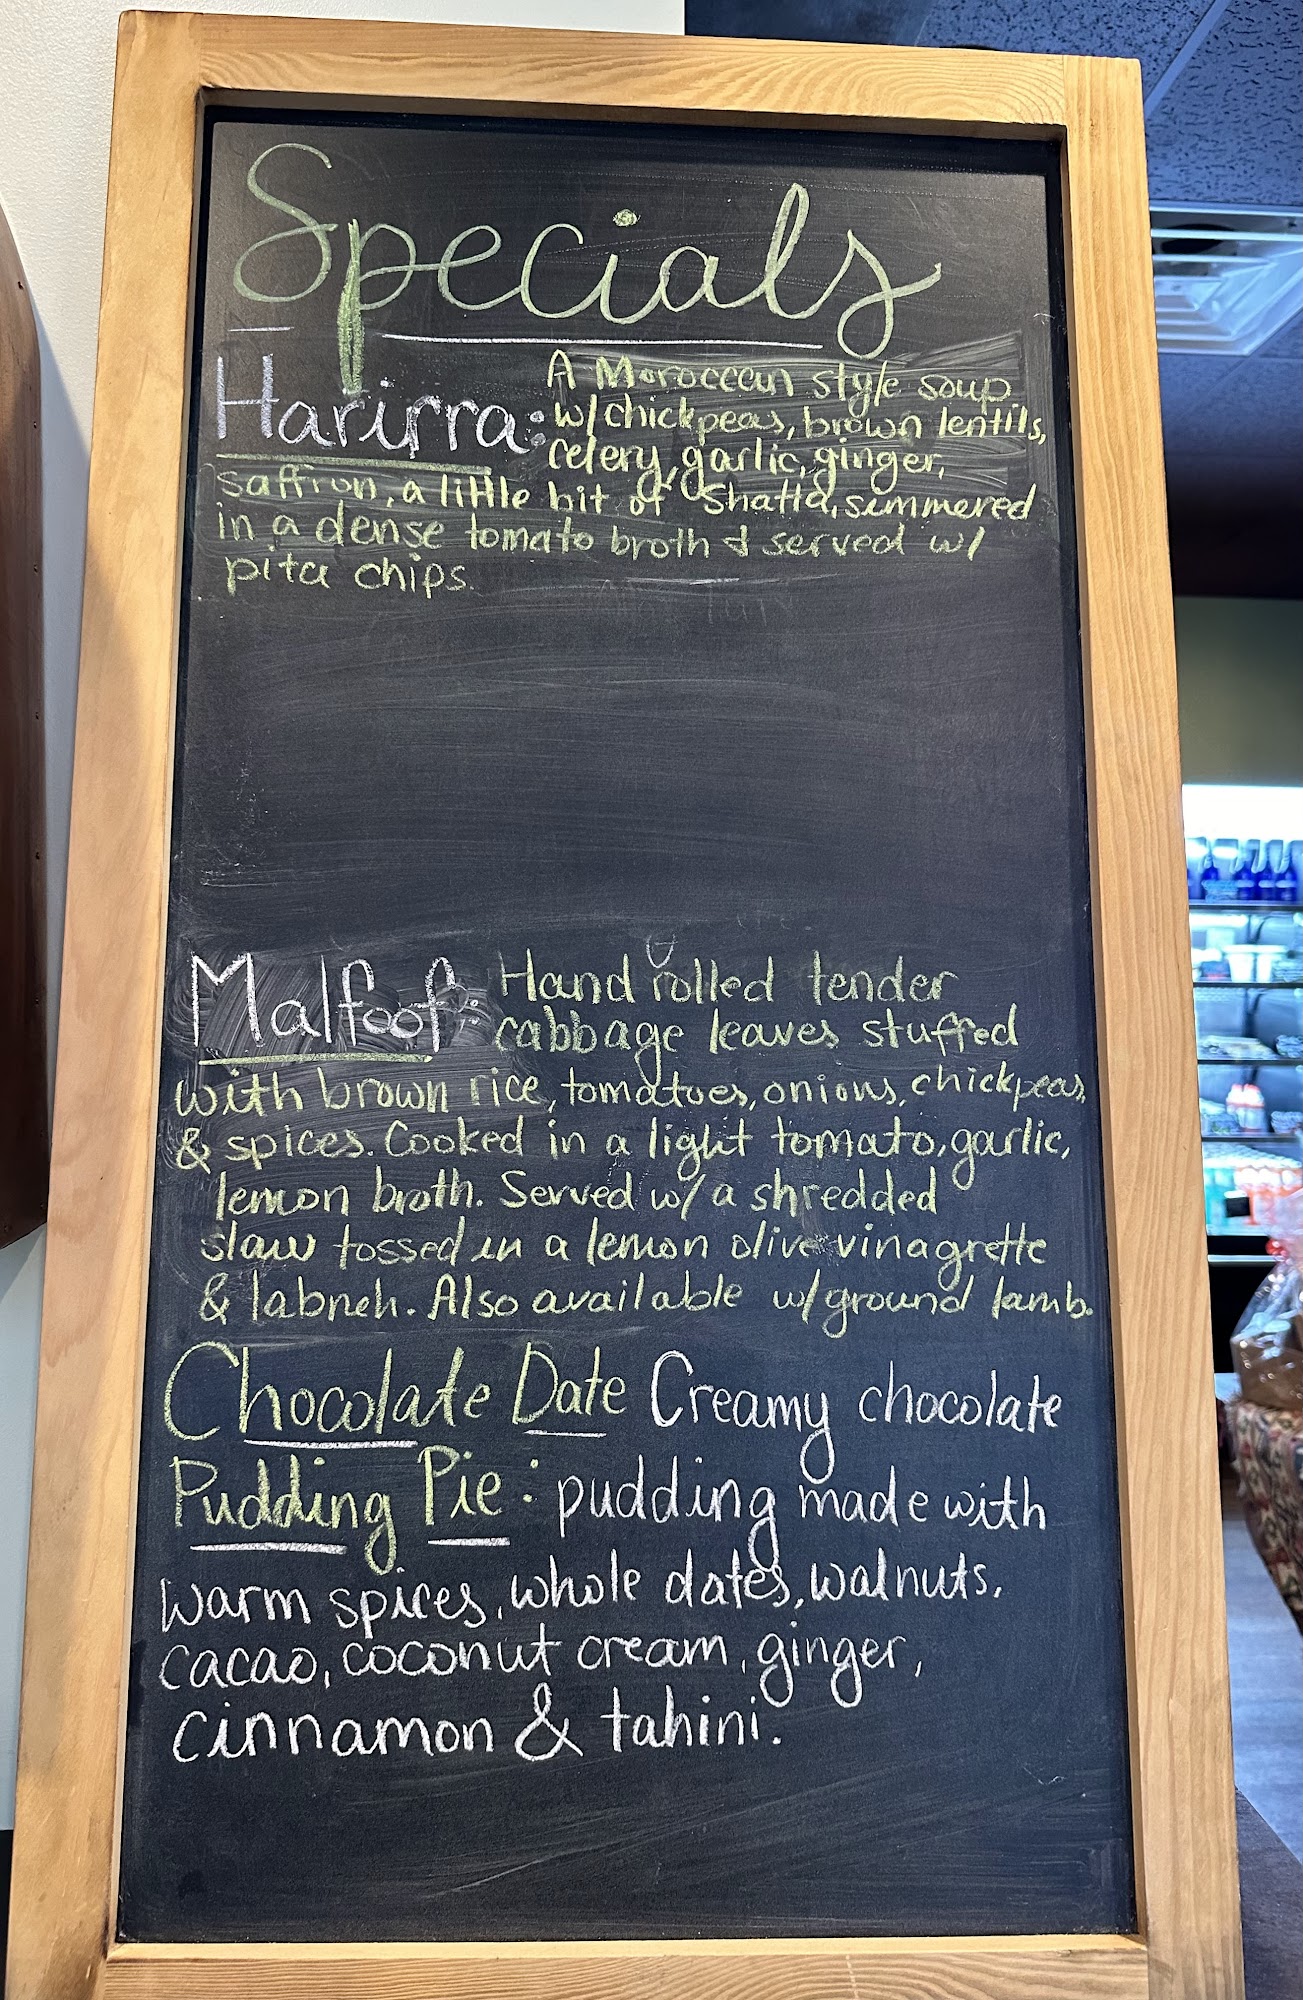 Specials
Harirra: A Moroccan style soup
w/chickpeas, brown lentils,
celery, garlic, ginger,
saffron, a little bit of Shatta, simmered
in a dense tomato broth & served w/
pita chips.
Malfoof: Hand rolled tender
cabbage leaves stuffed
with brown rice, tomatoes, onions, chickpeas
& spices. Cooked in a light tomato, garlic,
lemon broth. Served w/ a shredded
slaw tossed in a lemon olive vinagrette
& labneh. Also available w/ground lamb.
Chocolate Date Creamy chocolate
Pudding Pie: pudding made with
warm spices, whole dates, walnuts,
cacao, coconut cream, ginger,
cinnamon & tahini.